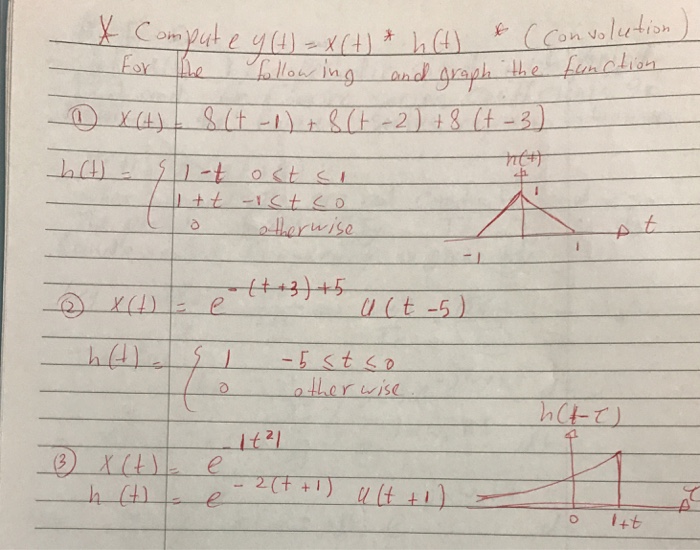 * Compute y(t) = x(t) * h(t) * (Convolution)
For the following and graph the function
① x(t) = δ(t-1) + δ(t-2) + δ(t-3)
h(t)
h(t) = { 1-t 0≤t≤1
1
1+t -1≤t≤0
0 otherwise
t
-1 1
② x(t) = e^-(t+3)+5 u(t-5)
h(t) = { 1 -5≤t≤0
0 otherwise
h(t-τ)
③ x(t) = e^-|t²|
h(t) = e^-2(t+1) u(t+1)
τ
0 1+t